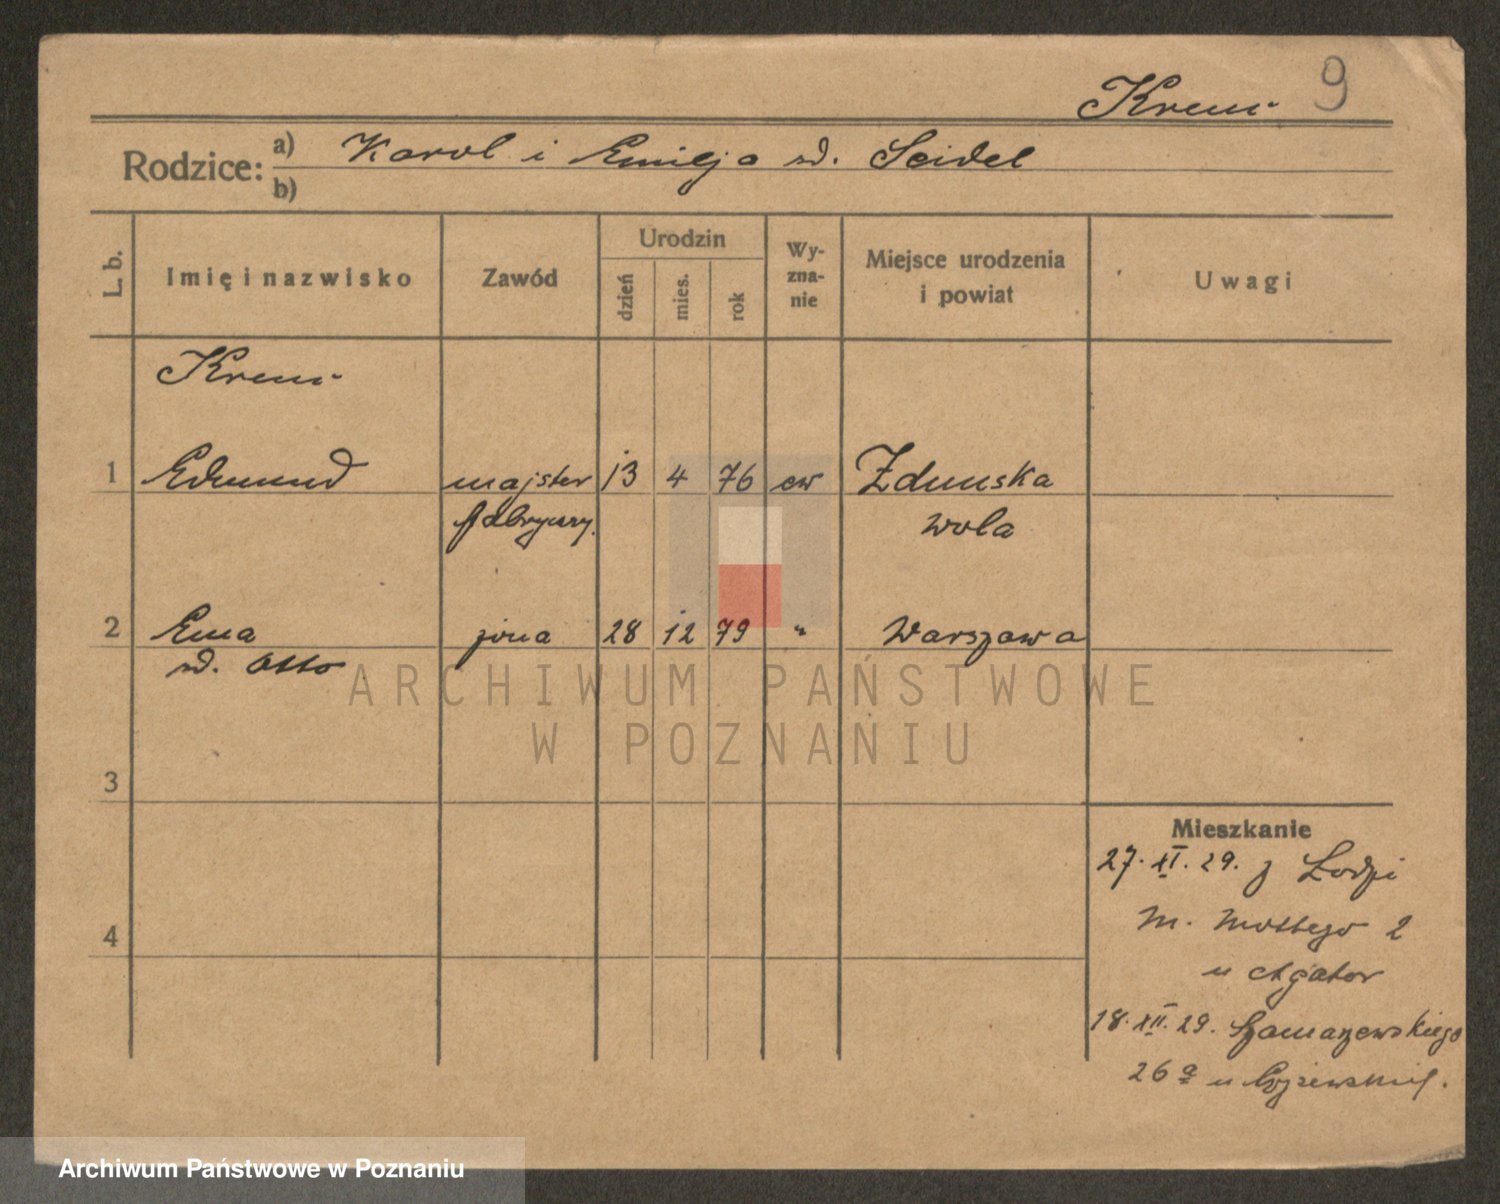 Krenn 9
Rodzice: a) Karol i Emilja zd. Seidel
b)
L. b. Imię i nazwisko Zawód Urodzin dzień mies. rok Wy-zna-nie Miejsce urodzenia i powiat Uwagi
1 Edmund majster 13 4 76 ew Zdunska
fabryczny. Wola
2 Ema żona 28 12 79 " Warszawa
zd. Otto
ARCHIWUM PAŃSTWOWE
W POZNANIU
3
4
Mieszkanie
27. XI. 29. z Łodzi
M. Mottego 2
u Agator
18. XII. 29. Szamarzewskiego
26a u
Archiwum Państwowe w Poznaniu